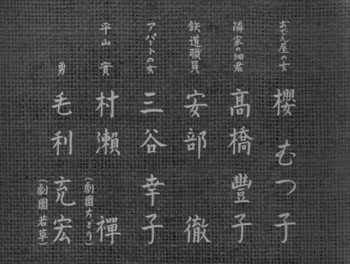 おでん屋の女 櫻むつ子
隣家の細君 高橋豐子
鉄道職員 安部徹
アパートの女 三谷幸子
平山實 村瀨禪
(劇團ちどり)
勇 毛利充宏
(劇團若草)